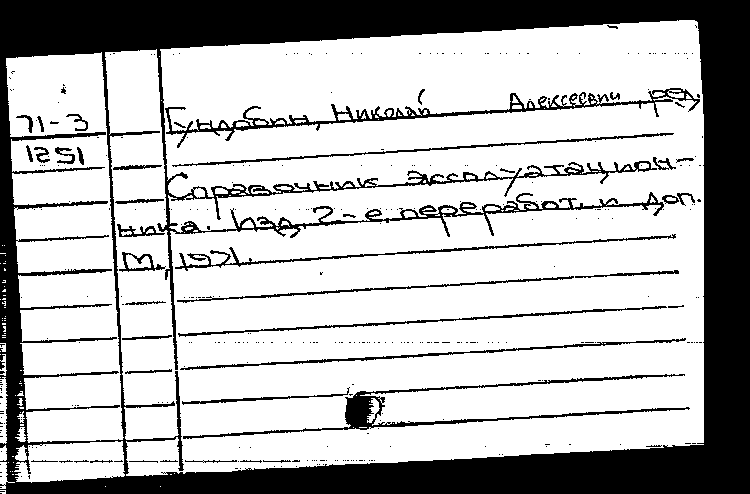 71-3 Гундобин, Николай Алексеевич, ред.
1251
Справочник эксплуатацион-
ника. Изд. 2-е, переработ. и доп.
М., 1971.